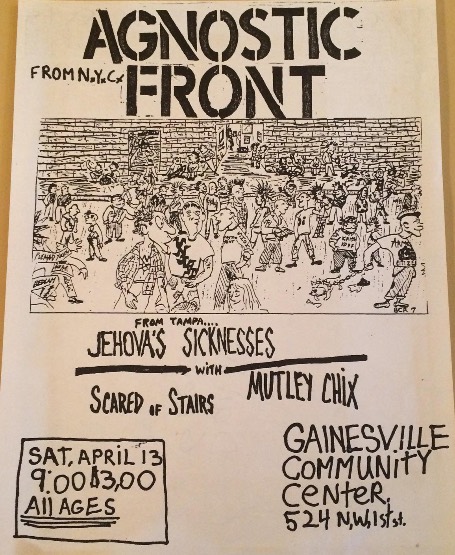 AGNOSTIC
FROM N.Y.C.
FRONT
FROM TAMPA....
JEHOVA'S SICKNESSES
WITH
SCARED OF STAIRS
MUTLEY CHIX
SAT, APRIL 13
9:00 $3,00
All AGES
GAINESVILLE
COMMUNITY
CENTER,
524 N.W, 1st st.